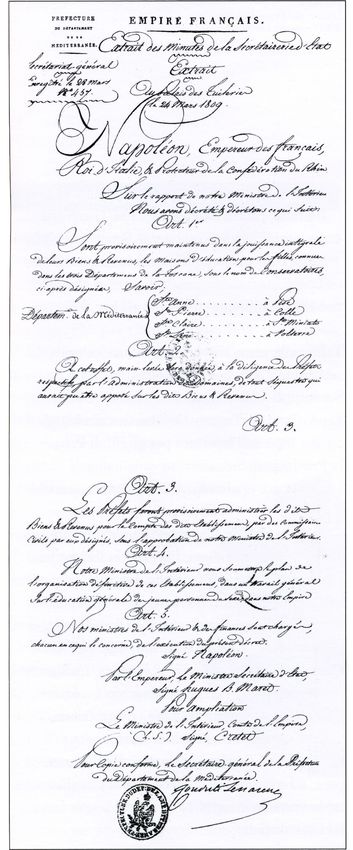 PREFECTURE
DU DÉPARTEMENT
DE LA
MÉDITERRANÉE.
EMPIRE FRANÇAIS.
Extrait des Minutes de la Secrétairerie d'Etat
Secrétariat général
Enregistré le 28 mars
N° 457.
Extrait
Au palais des Tuileries
le 24 Mars 1809.
Napoléon, Empereur des français,
Roi d'Italie & Protecteur de la Confédération du Rhin
Sur le rapport de notre Ministre de l'Intérieur
Nous avons décrété & décrétons ce qui suit:
Art. 1er
Sont provisoirement maintenus dans la jouissance intégrale
de leurs Biens & Revenus, les maisons d'éducation pour les filles, connues
dans les trois Départemens de la Toscane, sous le nom de Conservatoires,
ci après désignées, Savoir,
Départem. de la méditerranée
Ste Anne ........ à Pise
St Pierre ........ à Colle
Ste Claire ........ à St Miniato
........ à Volterre
Art. 2.
A cet effet, main levée sera donnée, à la diligence des Préfets
respectifs par l'administration des Domaines, de tout séquestre qui
aurait pu être apposé sur les dits Biens & Revenus.
Art. 3.
Art. 3.
Les Préfets feront provisoirement administrer les dits
Biens & Revenus pour le Compte des dits Etablissemens, par des Commissaires
civils par eux désignés, sous l'approbation de notre Ministre de l'Intérieur.
Art. 4.
Notre Ministre de l'Intérieur nous soumettra le plan de
l'organisation définitive de ces Etablissemens, dans un travail général
sur l'éducation générale des jeunes personnes du sexe, dans notre Empire
Art. 5.
Nos ministres de l'Intérieur & des finances sont chargés,
chacun en ce qui le concerne, de l'exécution du présent décret.
Signé Napoléon.
Par l'Empereur, le Ministre Secrétaire d'Etat
Signé hugues B. Maret.
Pour ampliation
Le Ministre de l'Intérieur, Comte de l'Empire,
(L.S.) Signé, Cretet
Pour Copie conforme, le Secrétaire général de la Préfecture
du Département de la méditerranée.